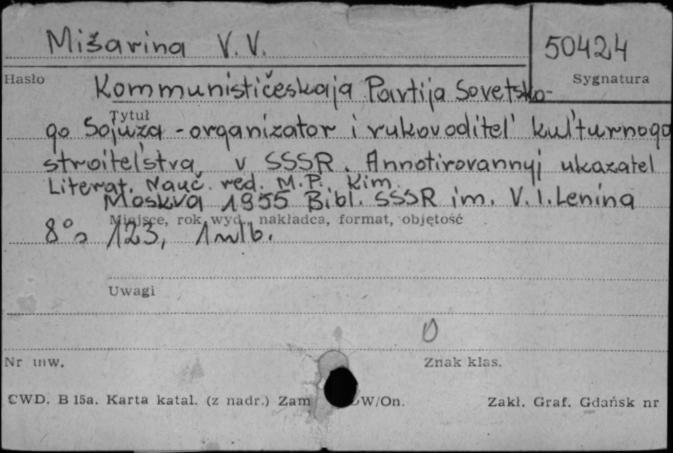 Mišarina V. V.
50424
Hasło
Sygnatura
Kommunističeskaja Partija Sovetsko-
Tytuł
go Sojuza - organizator i rukovoditel' kul'turnogo
stroitel'stva v SSSR. Annotirovannyj ukazatel
Literat. Nauč. red. M.P. Kim.
Moskva 1955 Bibl. SSSR im. V. I. Lenina
Miejsce, rok wyd., nakładca, format, objętość
8° 123, 1 nlb.
Uwagi
Nr inw.
Znak klas.
CWD. B 15a. Karta katal. (z nadr.) Zam W/On.
Zakł. Graf. Gdańsk nr